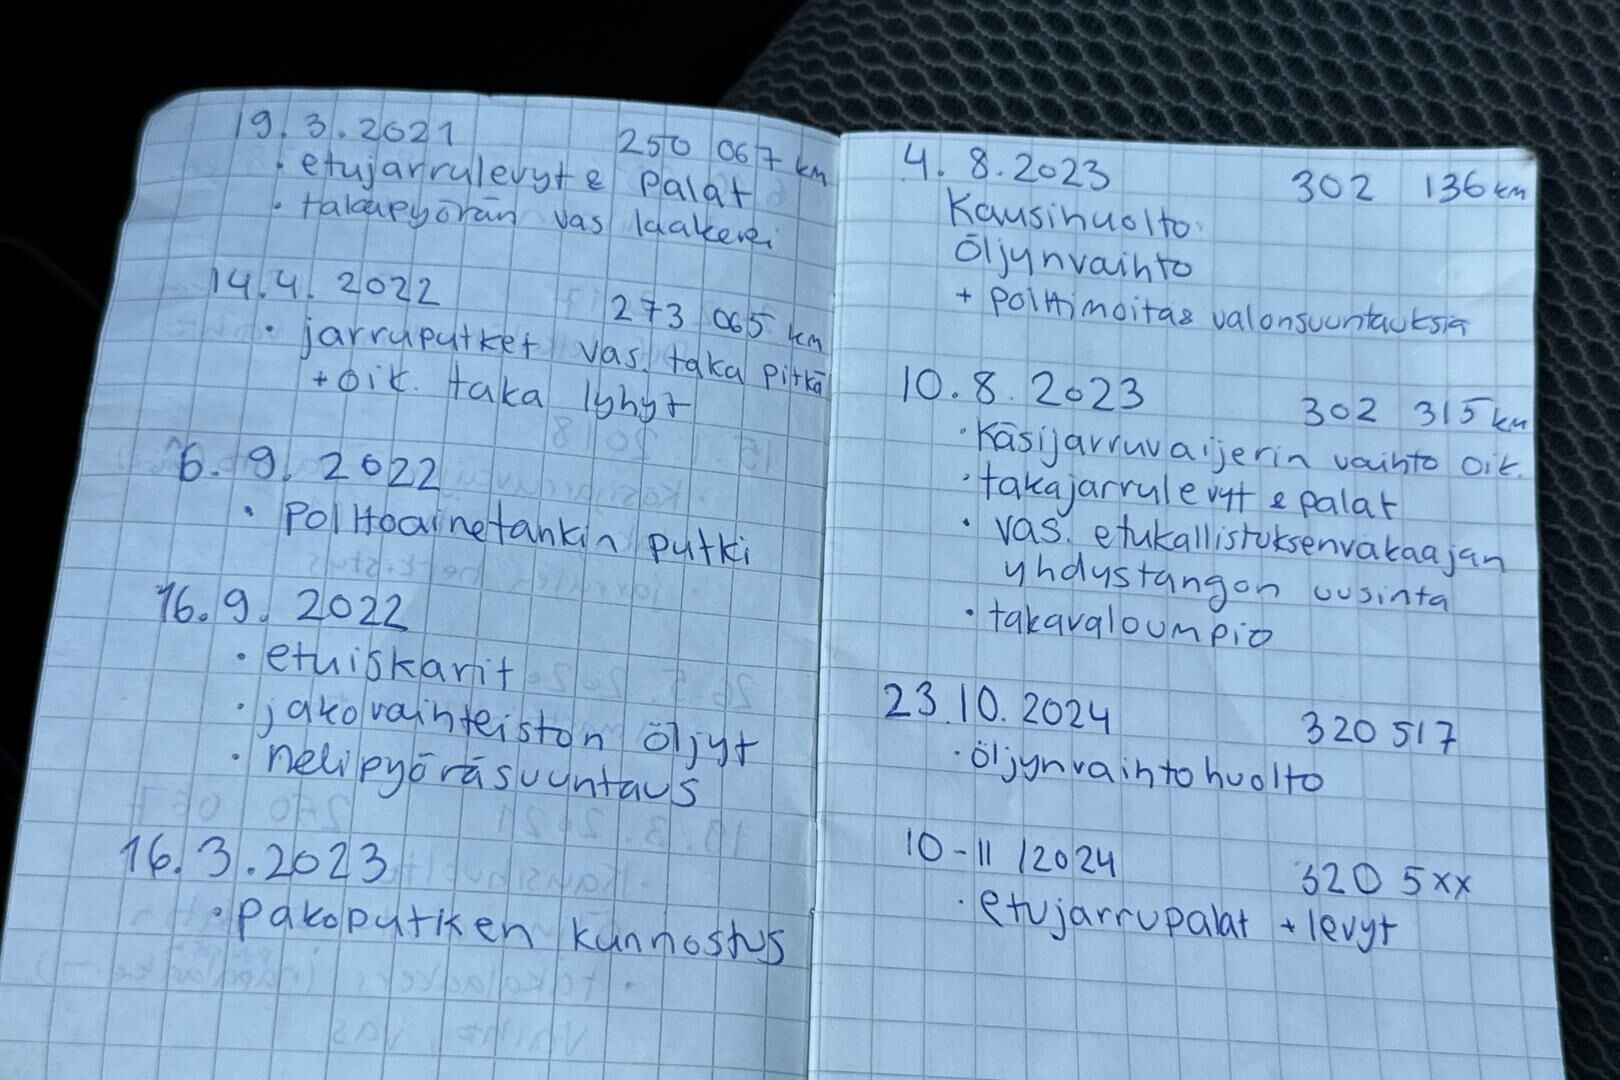 19.3.2021 250 067 km
• etujarrulevyt & palat
• takapyörän vas laakeri
14.4. 2022 273 065 km
• jarruputket vas. taka pitkä
+ oik. taka lyhyt
6. 9. 2022
• Polttoainetankin putki
16.9. 2022
• etuiskarit
• jakovaihteiston öljyt
• nelipyöräsuuntaus
16.3.2023
• pakoputken kunnostus
4. 8.2023 302 136 km
Kausihuolto
Öljynvaihto
+ polttimoita & valonsuuntauksia
10.8.2023 302 315 km
• Käsijarruvaijerin vaihto oik.
• takajarrulevyt & palat
• vas. etukallistuksenvakaajan
yhdystangon uusinta
• takavaloumpio
23.10.2024 320 517
• öljynvaihtohuolto
10-11/2024 320 5xx
• etujarrupalat + levyt